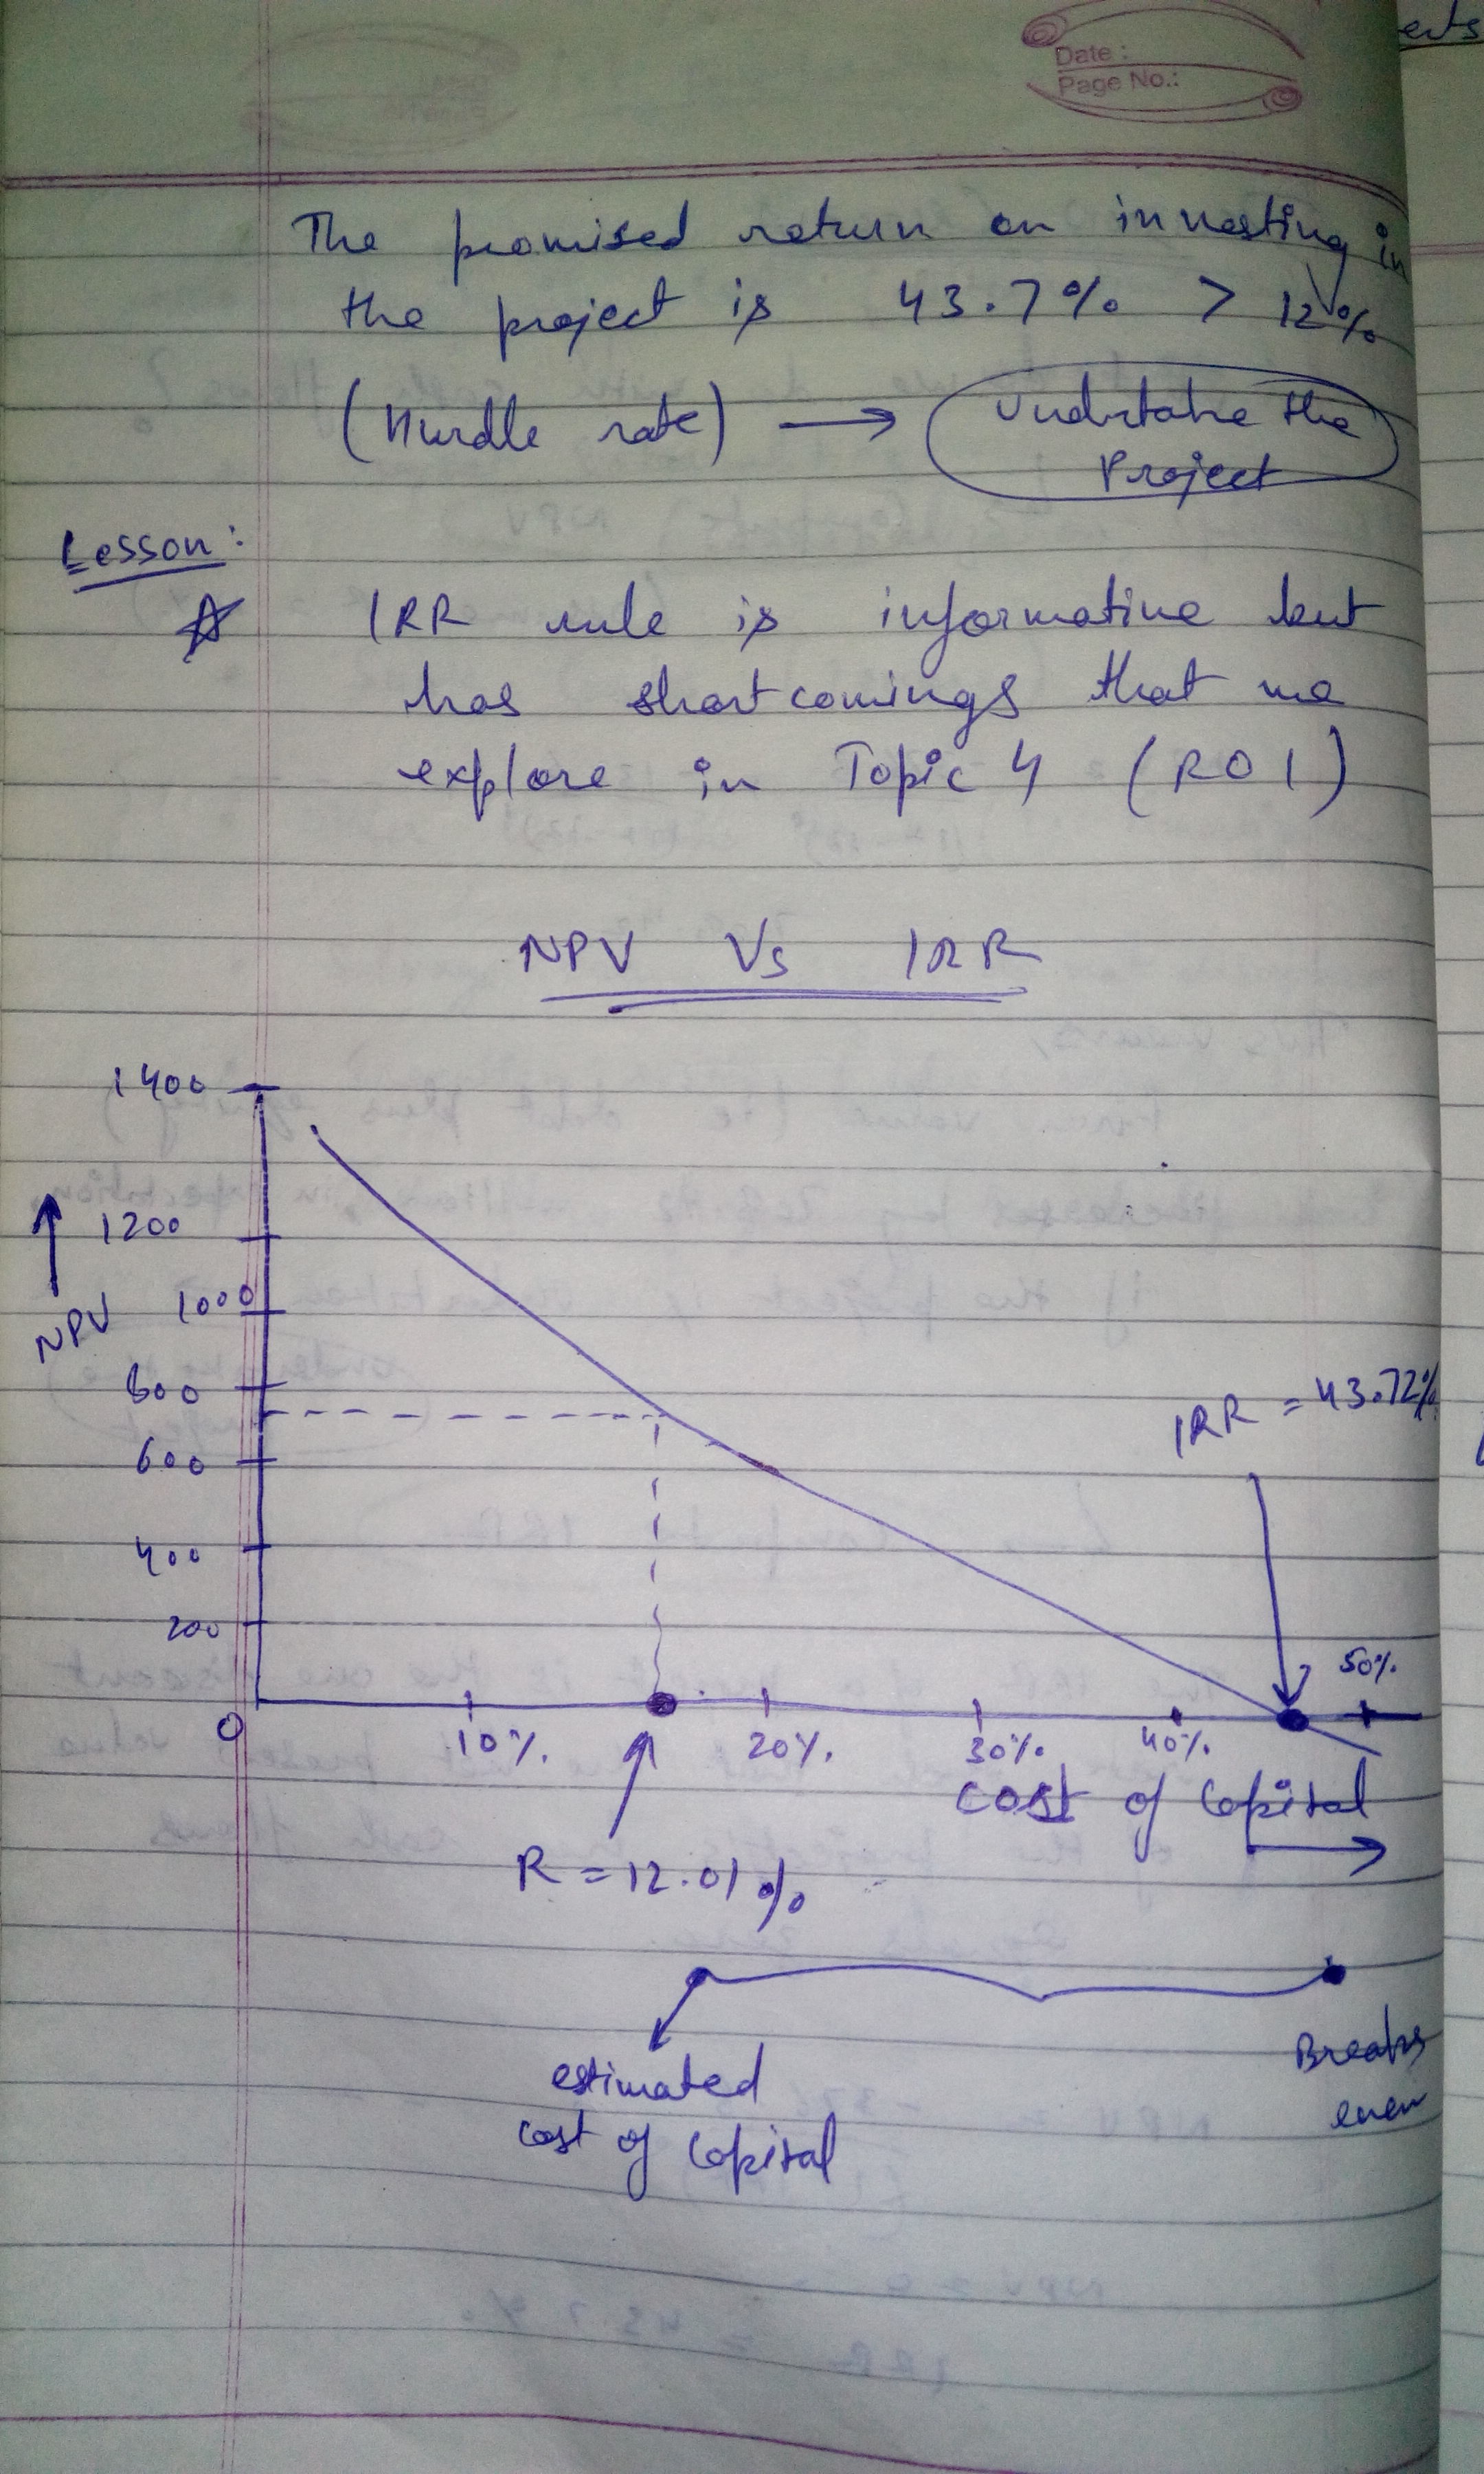 Date :
Page No.:
The promised return on investing in
the project is 43.7% > 12%
(Hurdle rate) → Undertake the
Project
Lesson:
☆ IRR rule is informative but
has shortcomings that we
explore in Topic 4 (ROI)
NPV Vs IRR
1400
1200
1000
NPV
800
600
400
200
0
IRR = 43.72%
50%
10% 20% 30% 40%
Cost of Capital
R = 12.01%
estimated
cost of Capital
Breaks
even